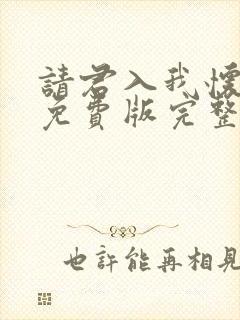 請君入我懷
免費版完整
也許能再相見